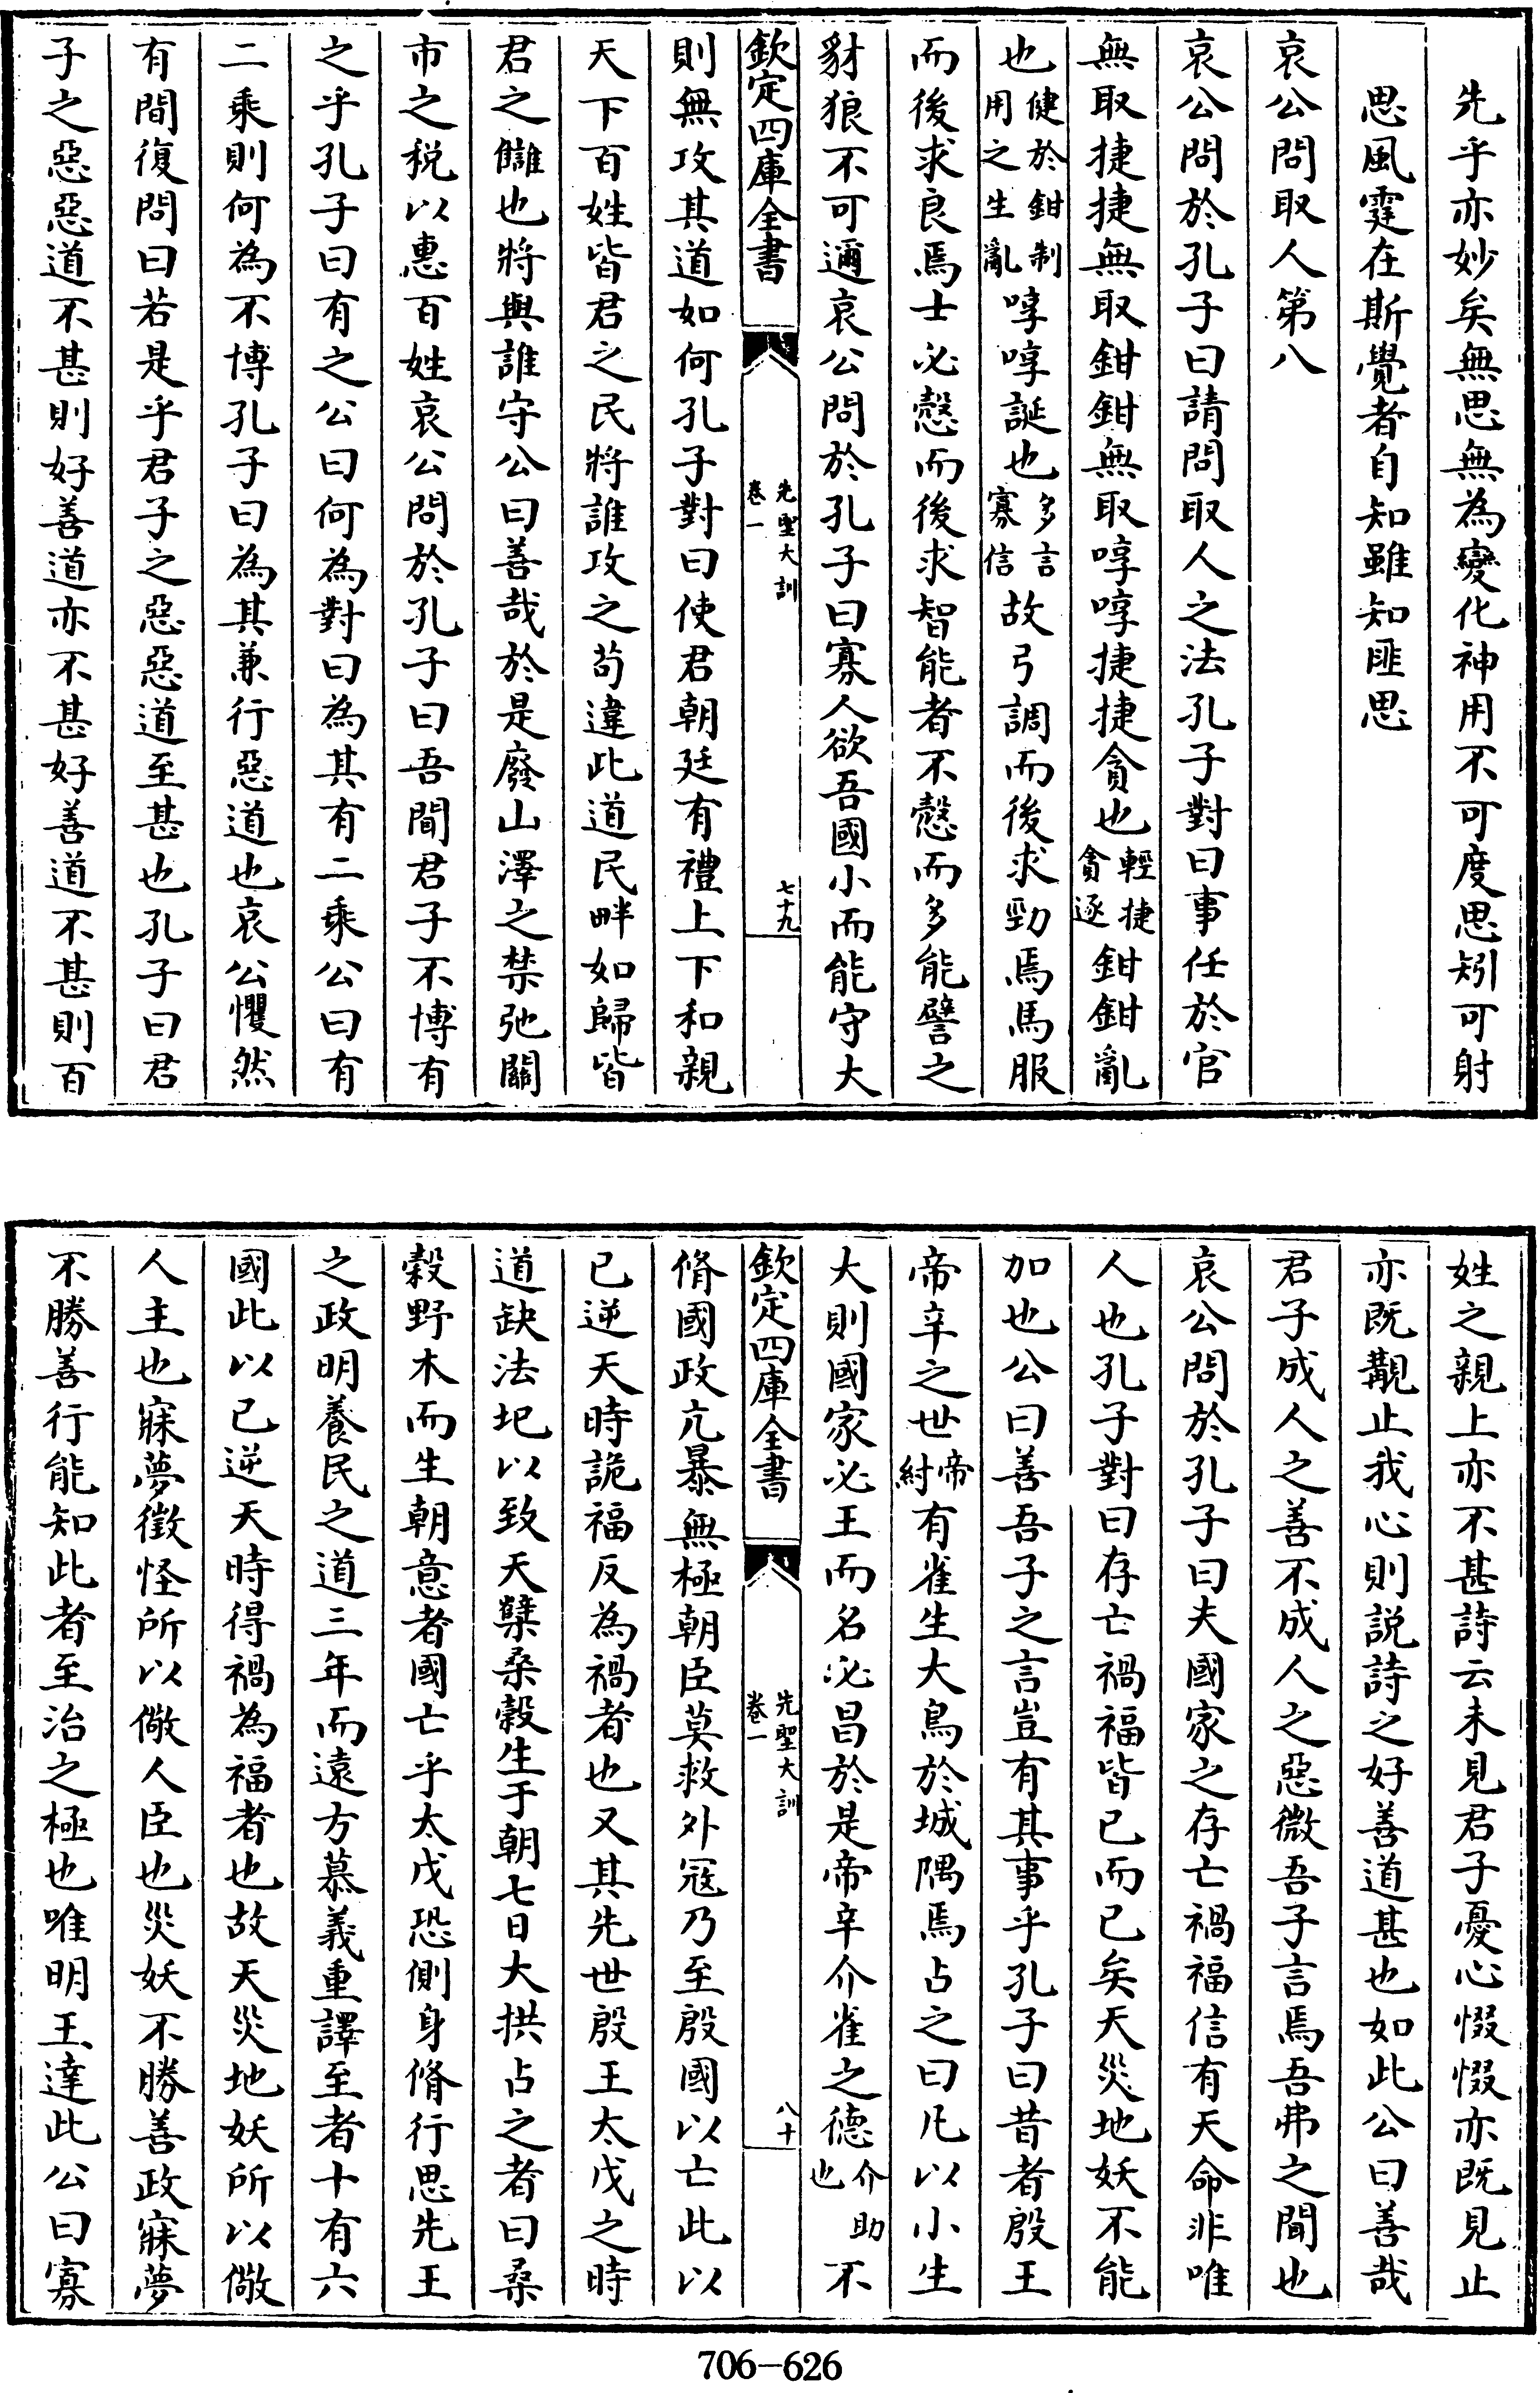 先乎亦妙矣無思無為變化神用不可度思矧可射
思風霆在斯覺者自知雖知匪思
哀公問取人第八
哀公問於孔子曰請問取人之法孔子對曰事任於官
無取捷捷無取鉗鉗無取啍啍捷捷貪也輕捷貪逐鉗鉗亂
也健於鉗制用之生亂啍啍誕也多言寡信故弓調而後求勁焉馬服
而後求良焉士必慤而後求智能者不慤而多能譬之
豺狼不可邇哀公問於孔子曰寡人欲吾國小而能守大
欽定四庫全書
先聖大訓
卷一
七十九
則無攻其道如何孔子對曰使君朝廷有禮上下和親
天下百姓皆君之民將誰攻之苟違此道民畔如歸皆
君之讎也將與誰守公曰善哉於是廢山澤之禁弛關
市之税以惠百姓哀公問於孔子曰吾聞君子不博有
之乎孔子曰有之公曰何為對曰為其有二乘公曰有
二乘則何為不博孔子曰為其兼行惡道也哀公懼然
有間復問曰若是乎君子之惡惡道至甚也孔子曰君
子之惡惡道不甚則好善道亦不甚好善道不甚則百
姓之親上亦不甚詩云未見君子憂心惙惙亦既見止
亦既覯止我心則説詩之好善道甚也如此公曰善哉
君子成人之善不成人之惡微吾子言焉吾弗之聞也
哀公問於孔子曰夫國家之存亡禍福信有天命非唯
人也孔子對曰存亡禍福皆已而已矣天災地妖不能
加也公曰善吾子之言豈有其事乎孔子曰昔者殷王
帝辛之世帝紂有雀生大鳥於城隅焉占之曰凡以小生
大則國家必王而名必昌於是帝辛介雀之德介助也不
欽定四庫全書
先聖大訓
卷一
八十
脩國政亢暴無極朝臣莫救外寇乃至殷國以亡此以
已逆天時詭福反為禍者也又其先世殷王太戊之時
道缺法圮以致天蘖桑榖生于朝七日大拱占之者曰桑
榖野木而生朝意者國亡乎太戊恐側身脩行思先王
之政明養民之道三年而遠方慕義重譯至者十有六
國此以已逆天時得禍為福者也故天災地妖所以儆
人主也寐夢徵怪所以儆人臣也災妖不勝善政寐夢
不勝善行能知此者至治之極也唯明王達此公曰寡
706-626